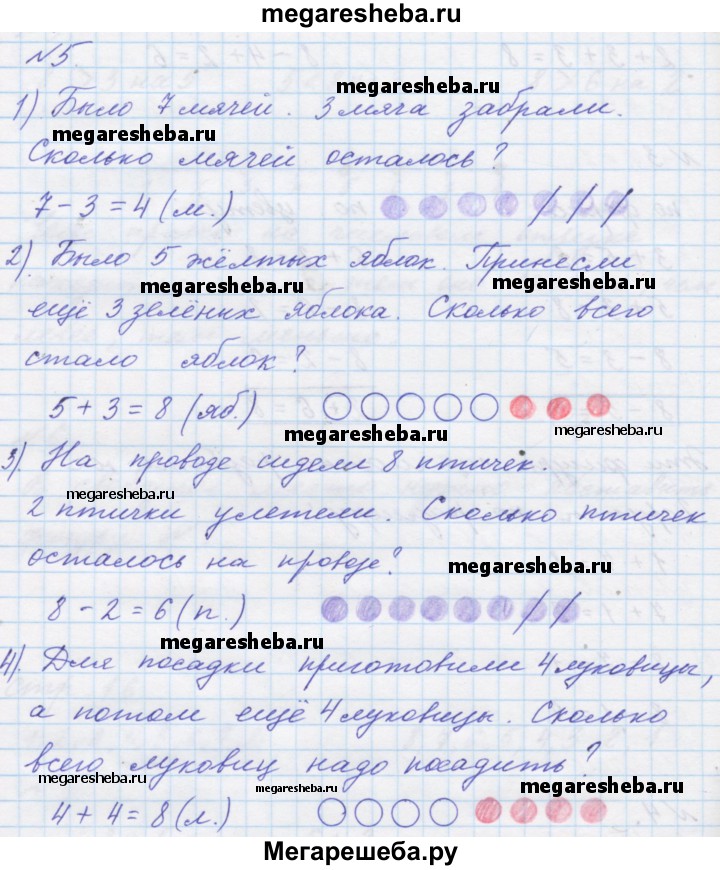 megaresheba.ru
№5.
megaresheba.ru
1) Было 7 мячей. 3 мяча забрали.
megaresheba.ru
Сколько мячей осталось?
7 - 3 = 4 (м.)
2) Было 5 жёлтых яблок. Принесли
megaresheba.ru megaresheba.ru
ещё 3 зелёных яблока. Сколько всего
стало яблок?
5 + 3 = 8 (яб.)
megaresheba.ru megaresheba.ru
3) На проводе сидели 8 птичек.
megaresheba.ru
2 птички улетели. Сколько птичек
осталось на проводе?
megaresheba.ru
8 - 2 = 6 (п.)
megaresheba.ru
4) Для посадки приготовили 4 луковицы,
а потом ещё 4 луковицы. Сколько
всего луковиц надо посадить?
megaresheba.ru megaresheba.ru megaresheba.ru
4 + 4 = 8 (л.)
Мегарешеба.ру